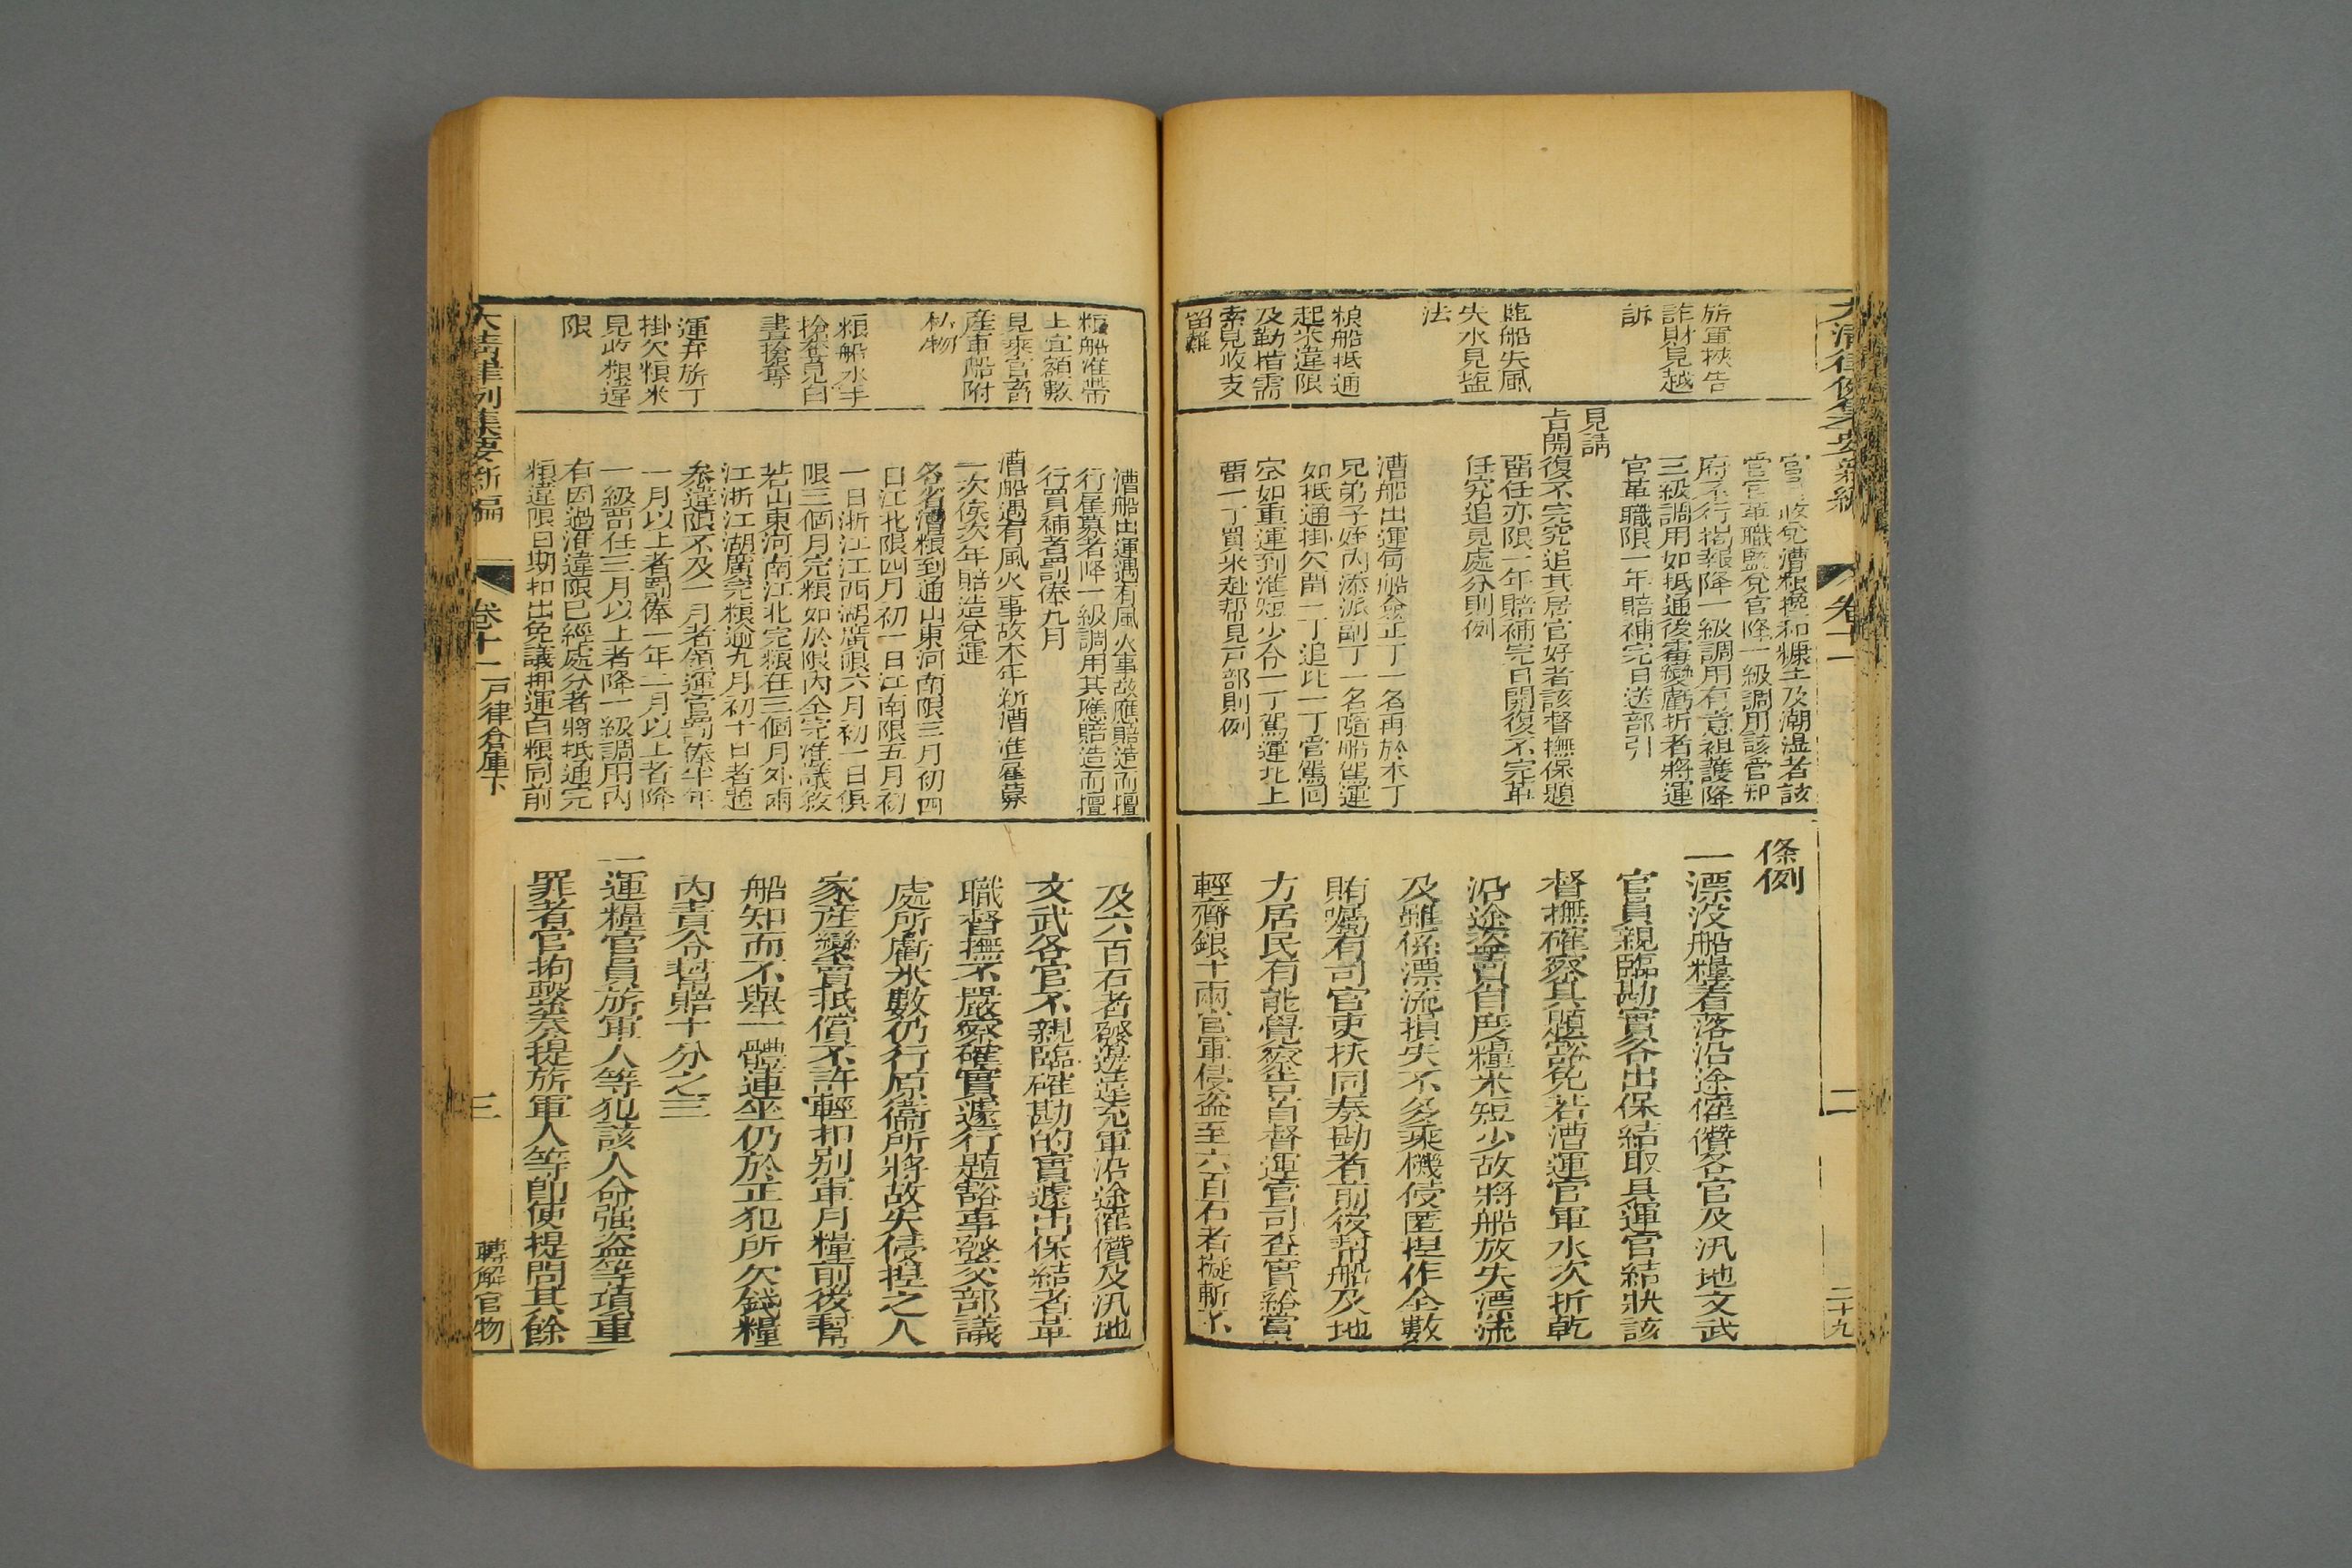 大清律例集要新編
卷十一
二
二十九
旂軍挾告
詐財見越
訴
監船失風
失水見鹽
法
粮船抵通
起米違限
及勒措需
索見收支
留難
官 收兌漕粮攙和糠土及潮濕者該
管官革職監兌官降一級調用該管知
府不行揭報降一級調用有意袒護降
三級調用如抵通後霉變虧折者將運
官革職限一年賠補完日送部引
見請
旨開復不完究追其居官好者該督撫保題
畱任亦限一年賠補完日開復不完革
任究追見處分則例
漕船出運每船僉正丁一名再於本丁
兄弟子姪內添派副丁一名隨船駕運
如抵通掛欠畱一丁追比一丁管駕回
空如重運到淮短少令一丁駕運北上
畱一丁買米赴帮見戸部則例
條例
一漂没船糧著落沿途催儹各官及汛地文武
官員親臨勘實各出保結取具運官結狀該
督撫確察具題豁免若漕運官軍水次折乾
沿途盜賣自度糧米短少故將船放失漂流
及雖係漂流損失不多乘機侵匿揑作全數
賄囑有司官吏扶同奏勘者前後幫船及地
方居民有能覺察告首督運官司查實給賞
輕齎銀十兩官軍侵盜至六百石者擬斬不
粮船准帶
上宜額數
見乘官畜
産車船附
私物
粮船水手
搶奪見白
晝搶奪
運弁旂丁
掛欠粮米
見收粮違
限
漕船出運遇有風火事故應賠造而擅
行雇募者降一級調用其應賠造而擅
行買補者罰俸九月
漕船遇有風火事故本年新漕准雇募
一次俟次年賠造兌運
各省漕粮到通山東河南限三月初四
日江北限四月初一日江南限五月初
一日浙江江西湖廣限六月初一日俱
限三個月完粮如於限內全完准議敘
若山東河南江北完粮在三個月外兩
江浙江湖廣完粮逾九月初十日者題
叅違限不及一月者領運官罰俸半年
一月以上者罰俸一年二月以上者降
一級畱任三月以上者降一級調用內
有因過淮違限已經處分者將抵通完
粮違限日期扣出免議押運白粮同前
及六百石者發邊遠充軍沿途催儹及汛地
文武各官不親臨確勘的實遽出保結者革
職督撫不嚴察確實遽行題豁事發交部議
處所虧米數仍行原衞所將故失侵揑之人
家産變賣抵償不許輕扣别軍月糧前後幫
船知而不舉一體連坐仍於正犯所欠錢糧
內責令攤賠十分之三
一運糧官員旂軍人等犯該人命强盜等項重
罪者官拘繫奏提旂軍人等即便提問其餘
大清律例集要新編
卷十一
戸律倉庫下
三
轉解官物